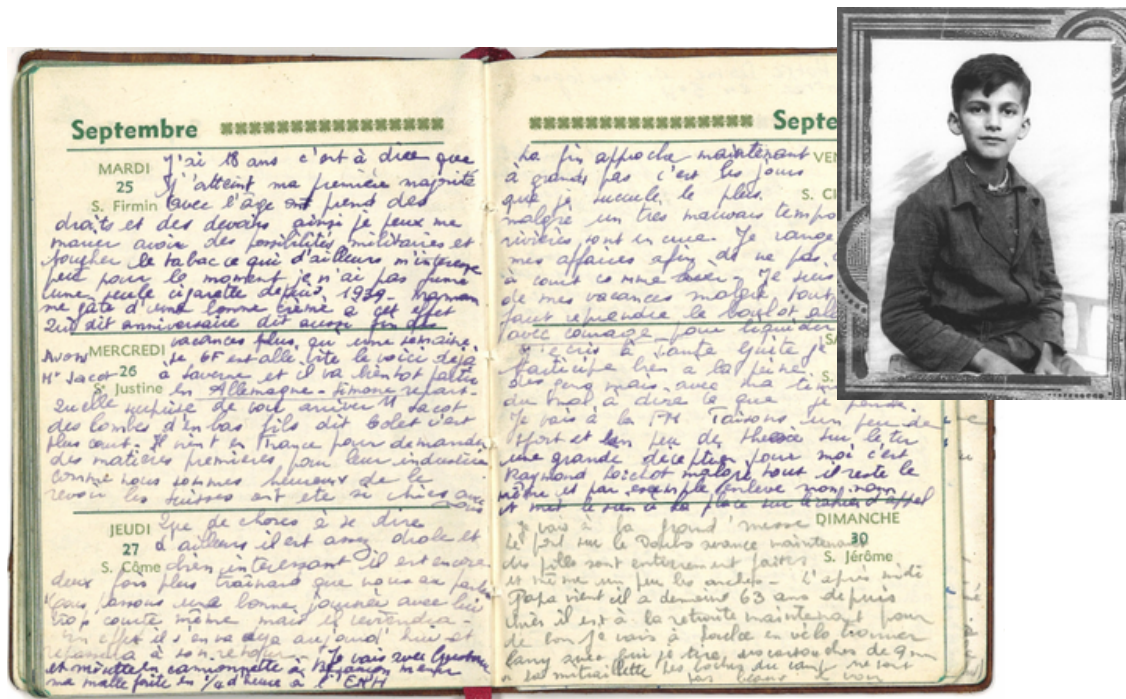 Septembre
MARDI
25
S. Firmin
J'ai 18 ans c'est à dire que
j'atteint ma première majorité
avec l'âge on prend des
droits et des devoirs ainsi je peux me
marier avoir des possibilités militaires et
toucher le tabac ce qui d'ailleurs m'interesse
peu pour le moment je n'ai pas fumé
une seule cigarette depuis 1939 - maman
me gate d'une bonne crème a cet effet
Qui dit anniversaire dit aussi fin des
MERCREDI
26
Se Justine
vacances plus qu'une semaine.
le 6F est allé vite le voici déja
a Saverne et il va bientot partir
en Allemagne - Simone repart -
Quelle surprise de voir arriver M Jacot
des Combes d'en bas fils dit Colet c'est
plus court. Il vient en France pour demander
des matières premières pour leur industrie
comme nous sommes heureux de le
revoir les Suisses ont été si chics avec
nous
JEUDI
27
S. Côme
Que de choses à se dire
d'ailleurs il est assez drole et
bien interessant il est encore
deux fois plus trainard que nous au
nous passons une bonne journée avec lui
trop courte même mais il reviendra -
En effet il s'en va déja aujourd'hui et
repassera à son retour - Je vais avec
et camionnette à Besançon mener
ma malle faite en 1/4 d'heure à l'
Septe
VEN
S.
La fin approche maintenant
à grands pas c'est les jours
que je le plus.
malgré un très mauvais temps
rivières sont en crue. Je range
mes affaires afin de ne pas
à court comme
de mes vacances malgré tout
faut reprendre le boulot
avec courage pour liquider
S.
J'ecris à tante Guite je
participe bien a la peine
des mais avec ma
du mal à dire ce que je pense.
Je vais à la PM Faisons un peu de
sport et un peu de theorie sur le tir
une grande déception pour moi c'est
Raymond malgré tout il reste le
même et par exemple enlève mon nom
et met le sien à la place sur le cahier d'appel
DIMANCHE
30
S. Jérôme
Je vais à la grand'messe
Le pont sur le Doubs avance maintenant
des piles sont entierement faites
et même un peu les arches - L'après midi
Papa vient il a demain 63 ans depuis
il est à la retraite maintenant pour
de bon je vais à en vélo trouver
avec qui je tire des cartouches de 9 mm
a la mitraillette Les boches du camp ne sont
pas beaux à voir